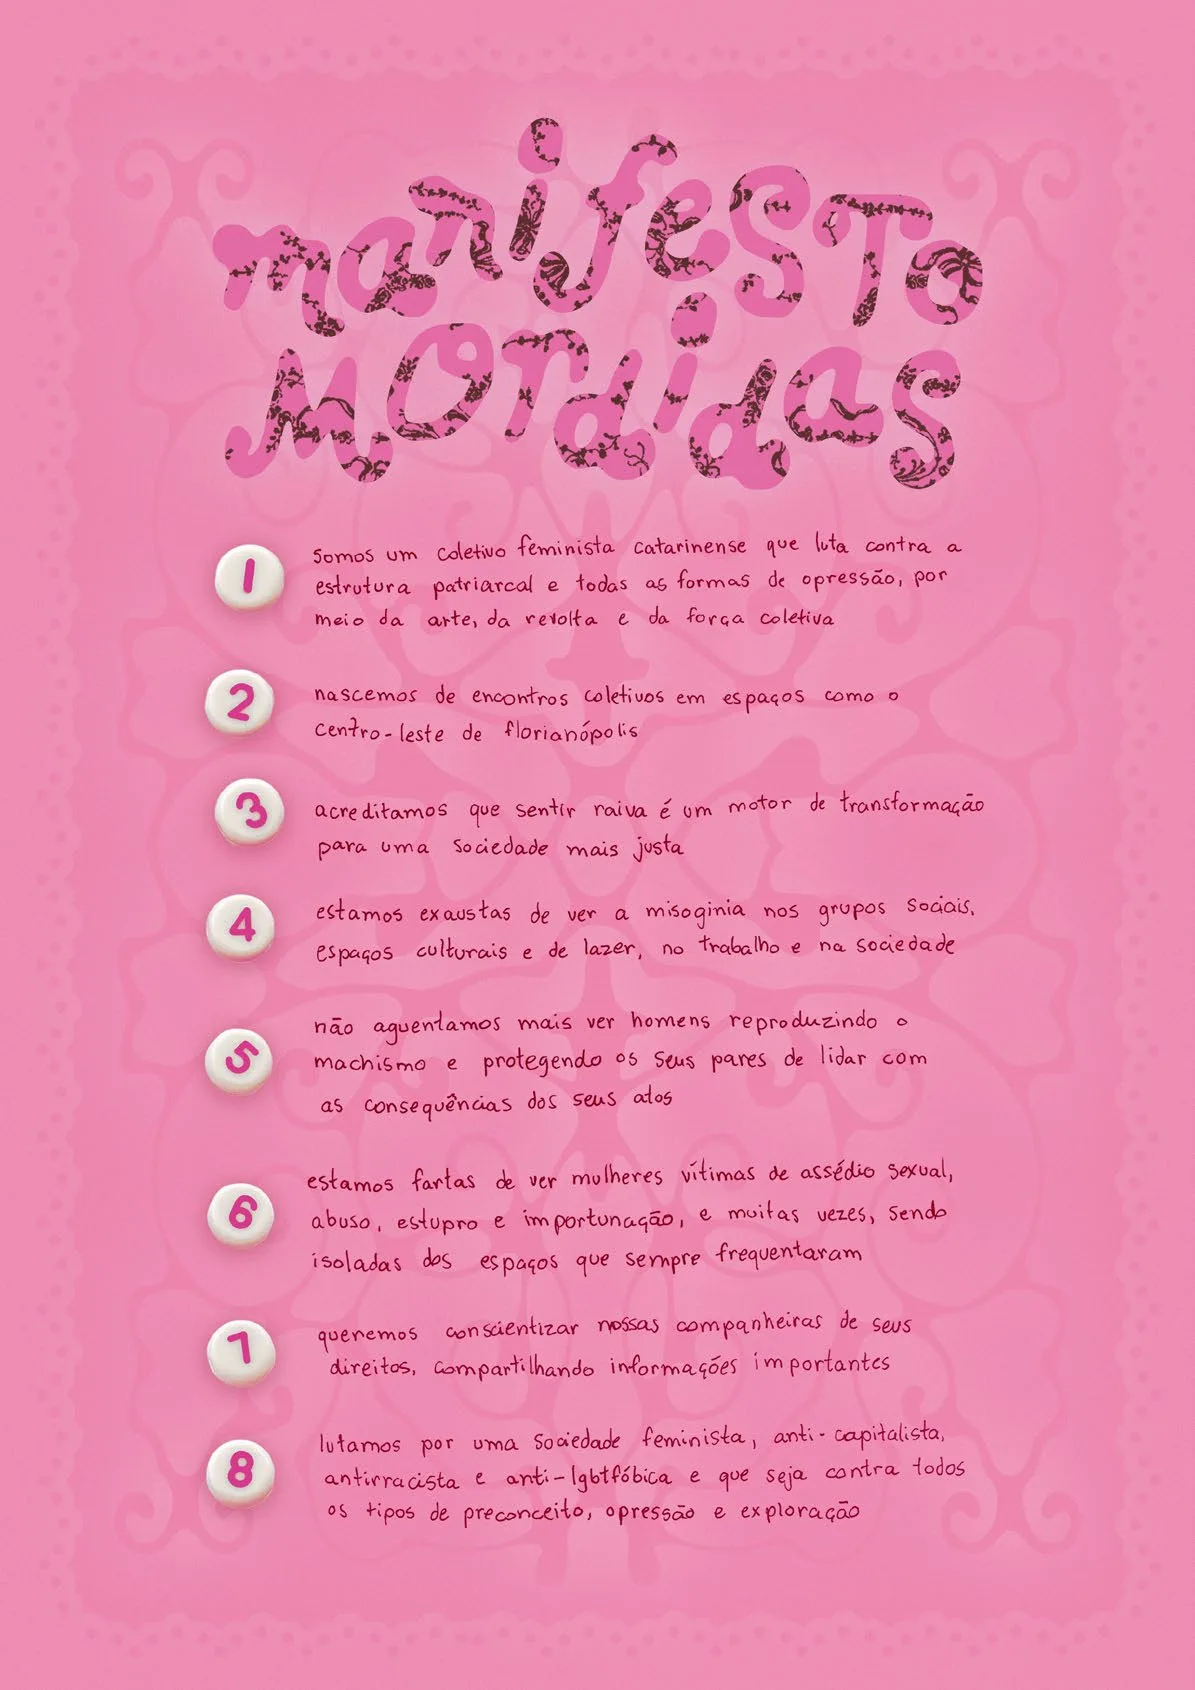 manifesto
mordidas
1
somos um coletivo feminista catarinense que luta contra a
estrutura patriarcal e todas as formas de opressão, por
meio da arte, da revolta e da força coletiva
2
nascemos de encontros coletivos em espaços como o
centro-leste de florianópolis
3
acreditamos que sentir raiva é um motor de transformação
para uma sociedade mais justa
4
estamos exaustas de ver a misoginia nos grupos sociais,
espaços culturais e de lazer, no trabalho e na sociedade
5
não aguentamos mais ver homens reproduzindo o
machismo e protegendo os seus pares de lidar com
as consequências dos seus atos
6
estamos fartas de ver mulheres vítimas de assédio sexual,
abuso, estupro e importunação, e muitas vezes, sendo
isoladas dos espaços que sempre frequentaram
7
queremos conscientizar nossas companheiras de seus
direitos, compartilhando informações importantes
8
lutamos por uma sociedade feminista, anti-capitalista,
antirracista e anti-lgbtfóbica e que seja contra todos
os tipos de preconceito, opressão e exploração